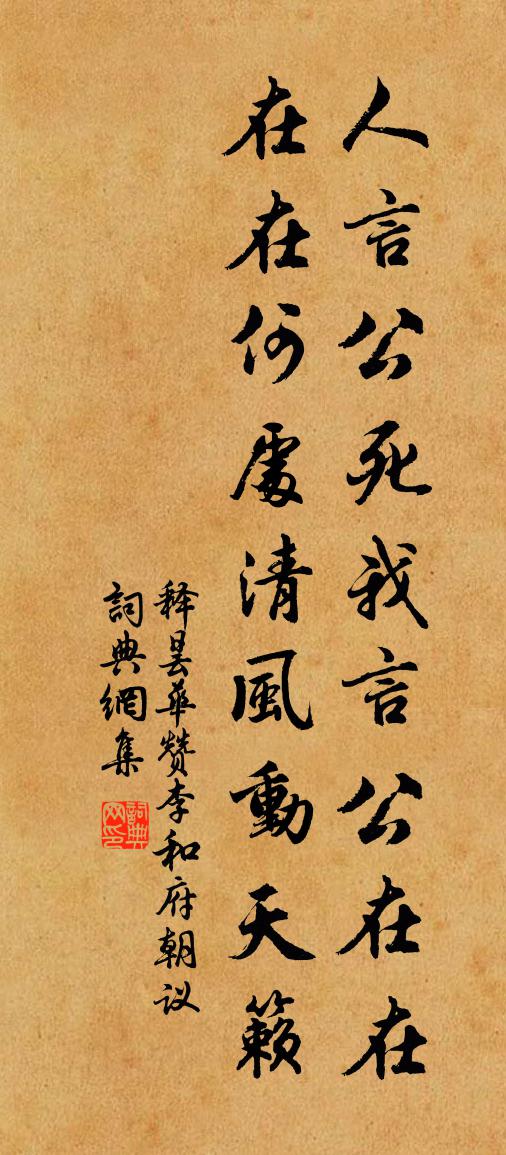 人言公死我言公在在
在在何處清風動天籟
释昙華赞李和府朝议
詞典網集
詞典網印